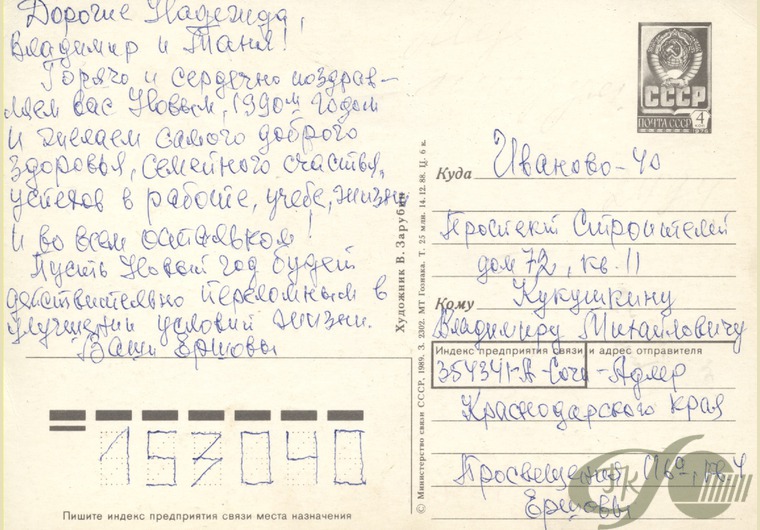 Дорогие Надежда,
Владимир и Таня!
Горячо и сердечно поздрав-
ляем вас Новым, 1990м годом
и желаем самого доброго
здоровья, семейного счастья,
успехов в работе, учебе, жизни
и во всем остальном!
Пусть Новый год будет
действительно переломным в
улучшении условий жизни.
Ваши Ершовы
153040
Пишите индекс предприятия связи места назначения
© Министерство связи СССР, 1989. З. 2302. МТ Гознака. Т. 25 млн. 14.12.88. Ц. 6 к.
Художник В. Зарубин
СССР
ПОЧТА СССР 4
1976
Куда Иваново-40
Проспект Строителей
дом 72, кв. 11
Кому Кукушкину
Владимиру Михайловичу
Индекс предприятия связи и адрес отправителя
354341-А-Сочи-Адлер
Краснодарского края
Просвещения кв 4
Ершовы